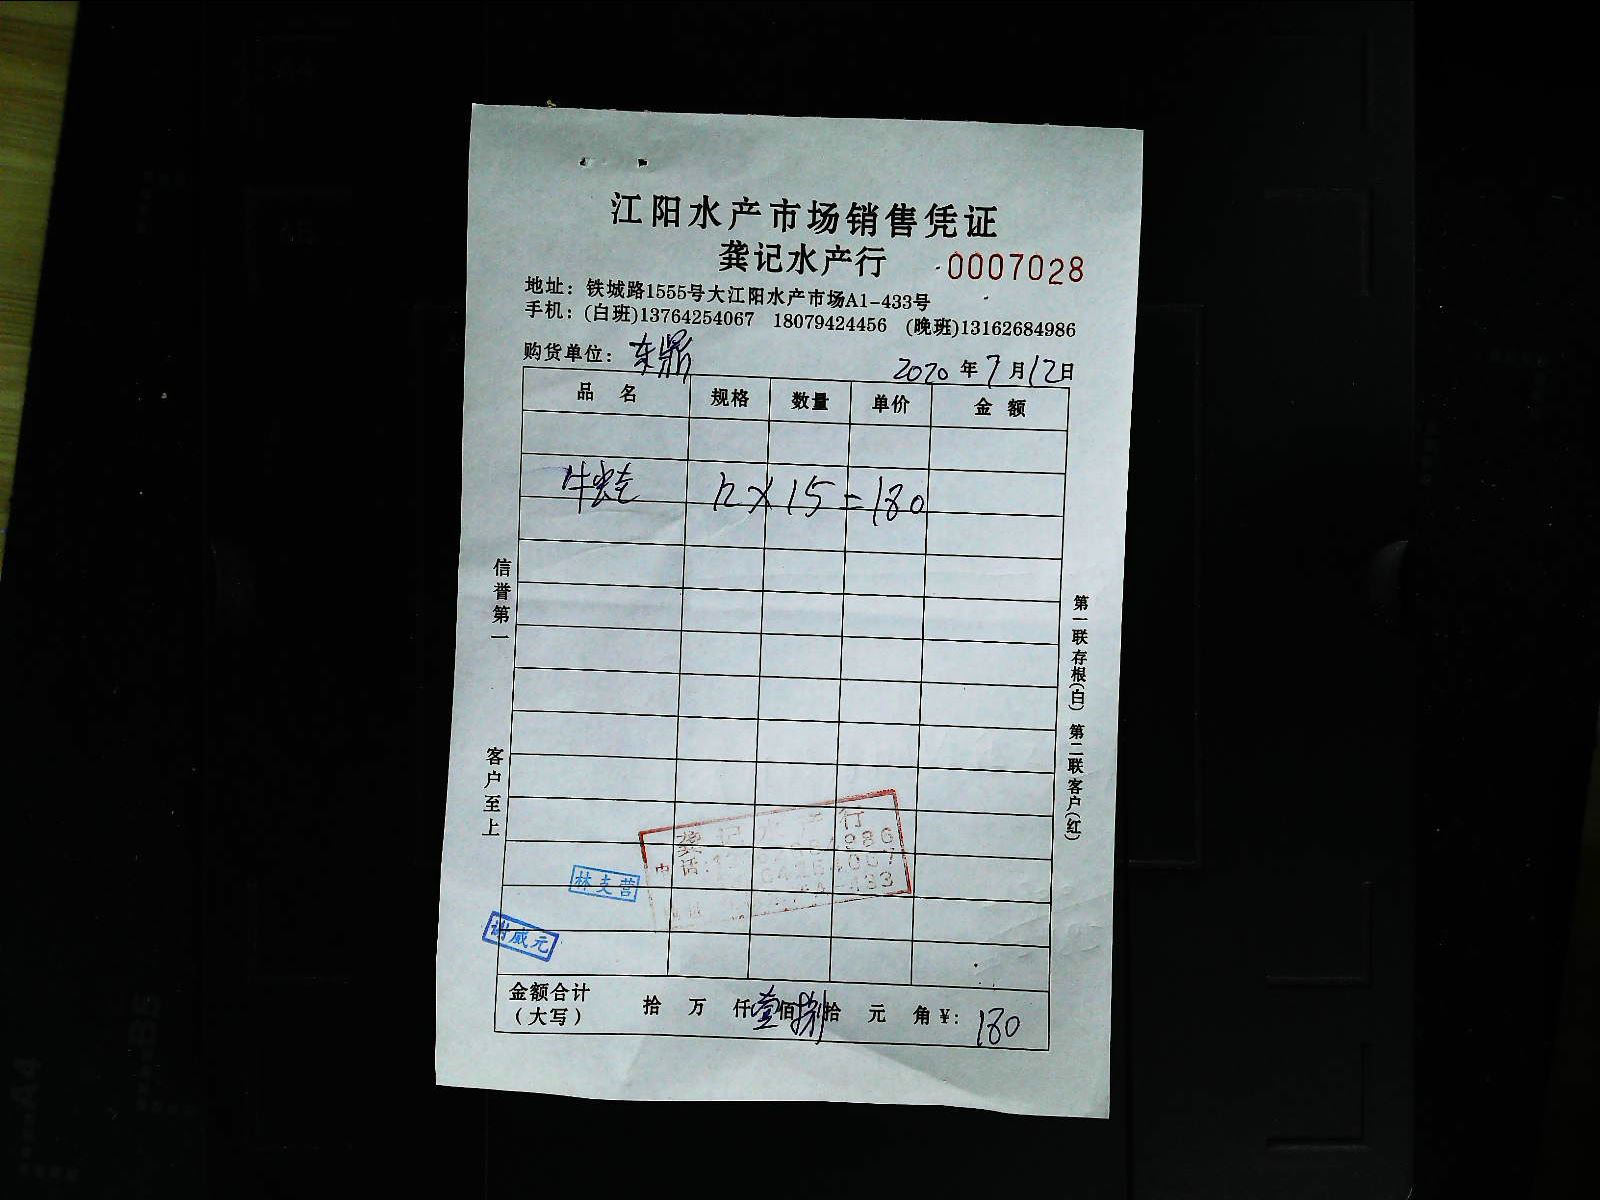 江阳水产市场销售凭证
龚记水产行 0007028
地址：铁城路1555号大江阳水产市场A1-433号
手机：(白班)13764254067 18079424456 (晚班)13162684986
购货单位：东鼎 2020年7月12日
品名 规格 数量 单价 金额
牛蛙 12×15=180
信誉第一
客户至上
第一联存根(白) 第二联客户(红)
龚记水产行
电话:
林支营
谢威元
金额合计（大写） 拾 万 仟壹佰捌拾 元 角¥: 180